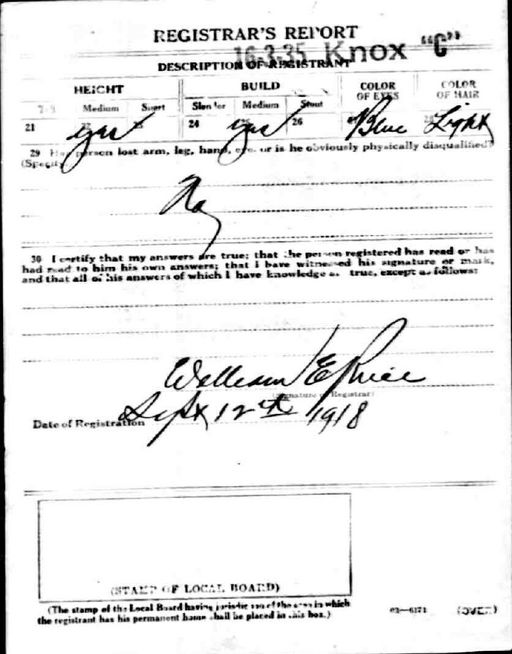 REGISTRAR'S REPORT
16-3-35 Knox "C"
DESCRIPTION OF REGISTRANT
HEIGHT BUILD COLOR OF EYES COLOR OF HAIR
Medium Short Slender Medium Stout
21 yes 24 yes 26 Blue Light
29 Has person lost arm, leg, hand, eye, or is he obviously physically disqualified?
(Specify)
No
30 I certify that my answers are true; that the person registered has read or has
had read to him his own answers; that I have witnessed his signature or mark,
and that all of his answers of which I have knowledge are true, except as follows:
William E Rice
(Signature of Registrar)
Date of Registration Sept 12th 1918
(STAMP OF LOCAL BOARD)
(The stamp of the Local Board having jurisdiction of the area in which
the registrant has his permanent home shall be placed in this box.)
03—6171 (OVER)